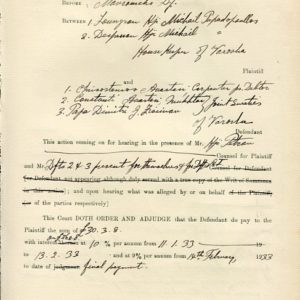 BEFORE Mavromatis Dj.
BETWEEN 1. Lourgrou H/o Michael Papadopoullos
2. Despinou H/o Michael
House Keeper of Varosha
Plaintiff
and
1. Carpenter, pr. Debtor
2. Constanti Mukhtar
3. Papa Dimitri J. Sureties
of Varosha
Defendant
This action coming on for hearing in the presence of
Counsel for Plaintiff
and Mr. Dfts 2 & 3 present for themselves & for Counsel for Defendant
not appearing although duly served with a true copy of the Writ of Summons
in this action] ; and upon hearing what was alleged by or on behalf of the Plaintiff,
of the parties respectively]
This Court DOTH ORDER AND ADJUDGE that the Defendant do pay to the
Plaintiff the sum of £30. 3. 8.
with interest at 10 % per annum from 11. 1. 33 19
to 13. 2. 33 and at 9% per annum from 14th February, 1933
to date of judgment. final payment.